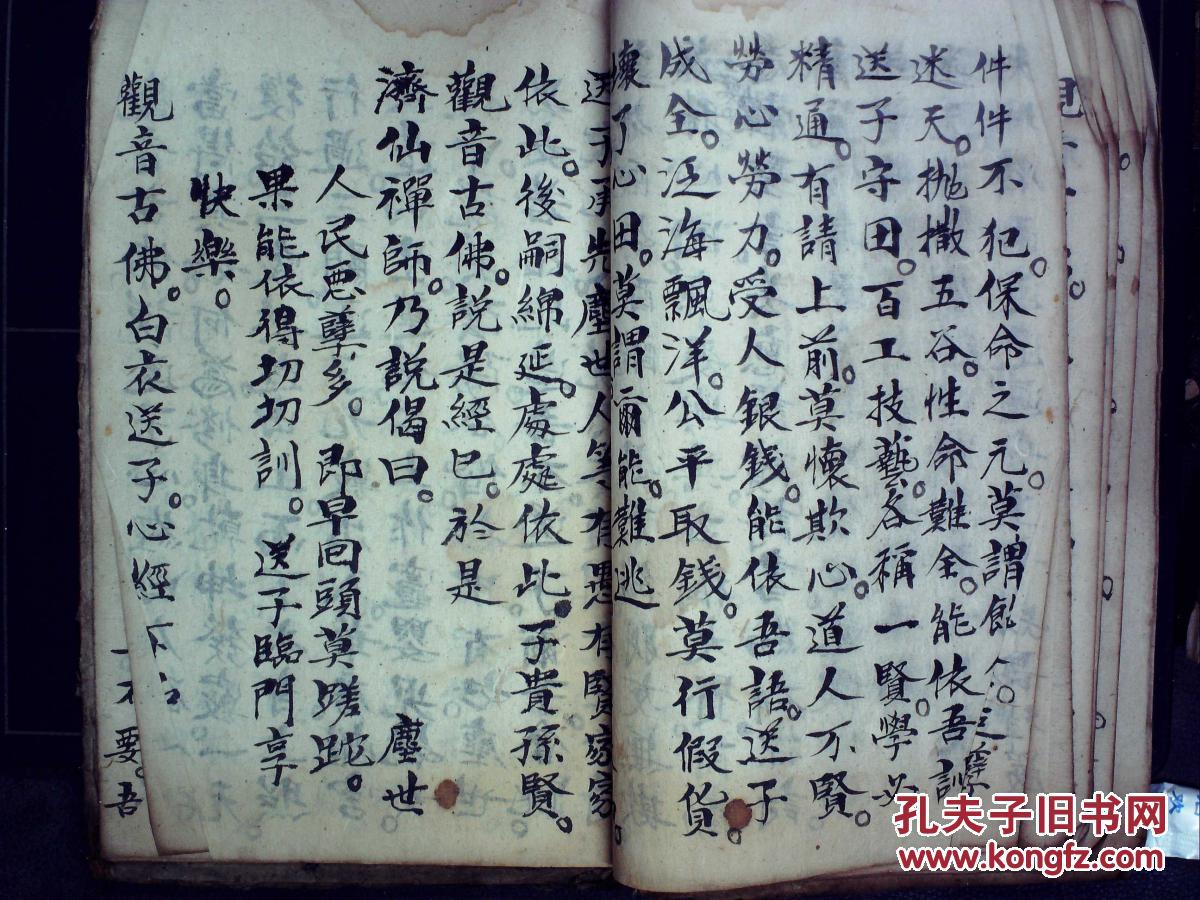 件件不犯。保命之元。莫謂飽
迷天。抛撒五谷。性命難全。能依吾訓
送子守田。百工技藝。各稱一賢。學必
精通。有請上前。莫懷欺心。道人不賢。
勞心勞力。受人銀錢。能依吾語。送子
成全。泛海飄洋。公平取錢。莫行假貨。
壞了心田。莫謂爾能。難逃
送子承先。塵世人等。有愚有賢。家家
依此。後嗣綿延。處處依此。子貴孫賢。
觀音古佛。說是經已。於是
濟仙禪師。乃說偈曰。塵世
人民惡孽多。即早回頭莫蹉跎。
果能依得切切訓。送子臨門享
快樂。
觀音古佛。白衣送子。心經下
要。吾
孔夫子旧书网
www.kongfz.com